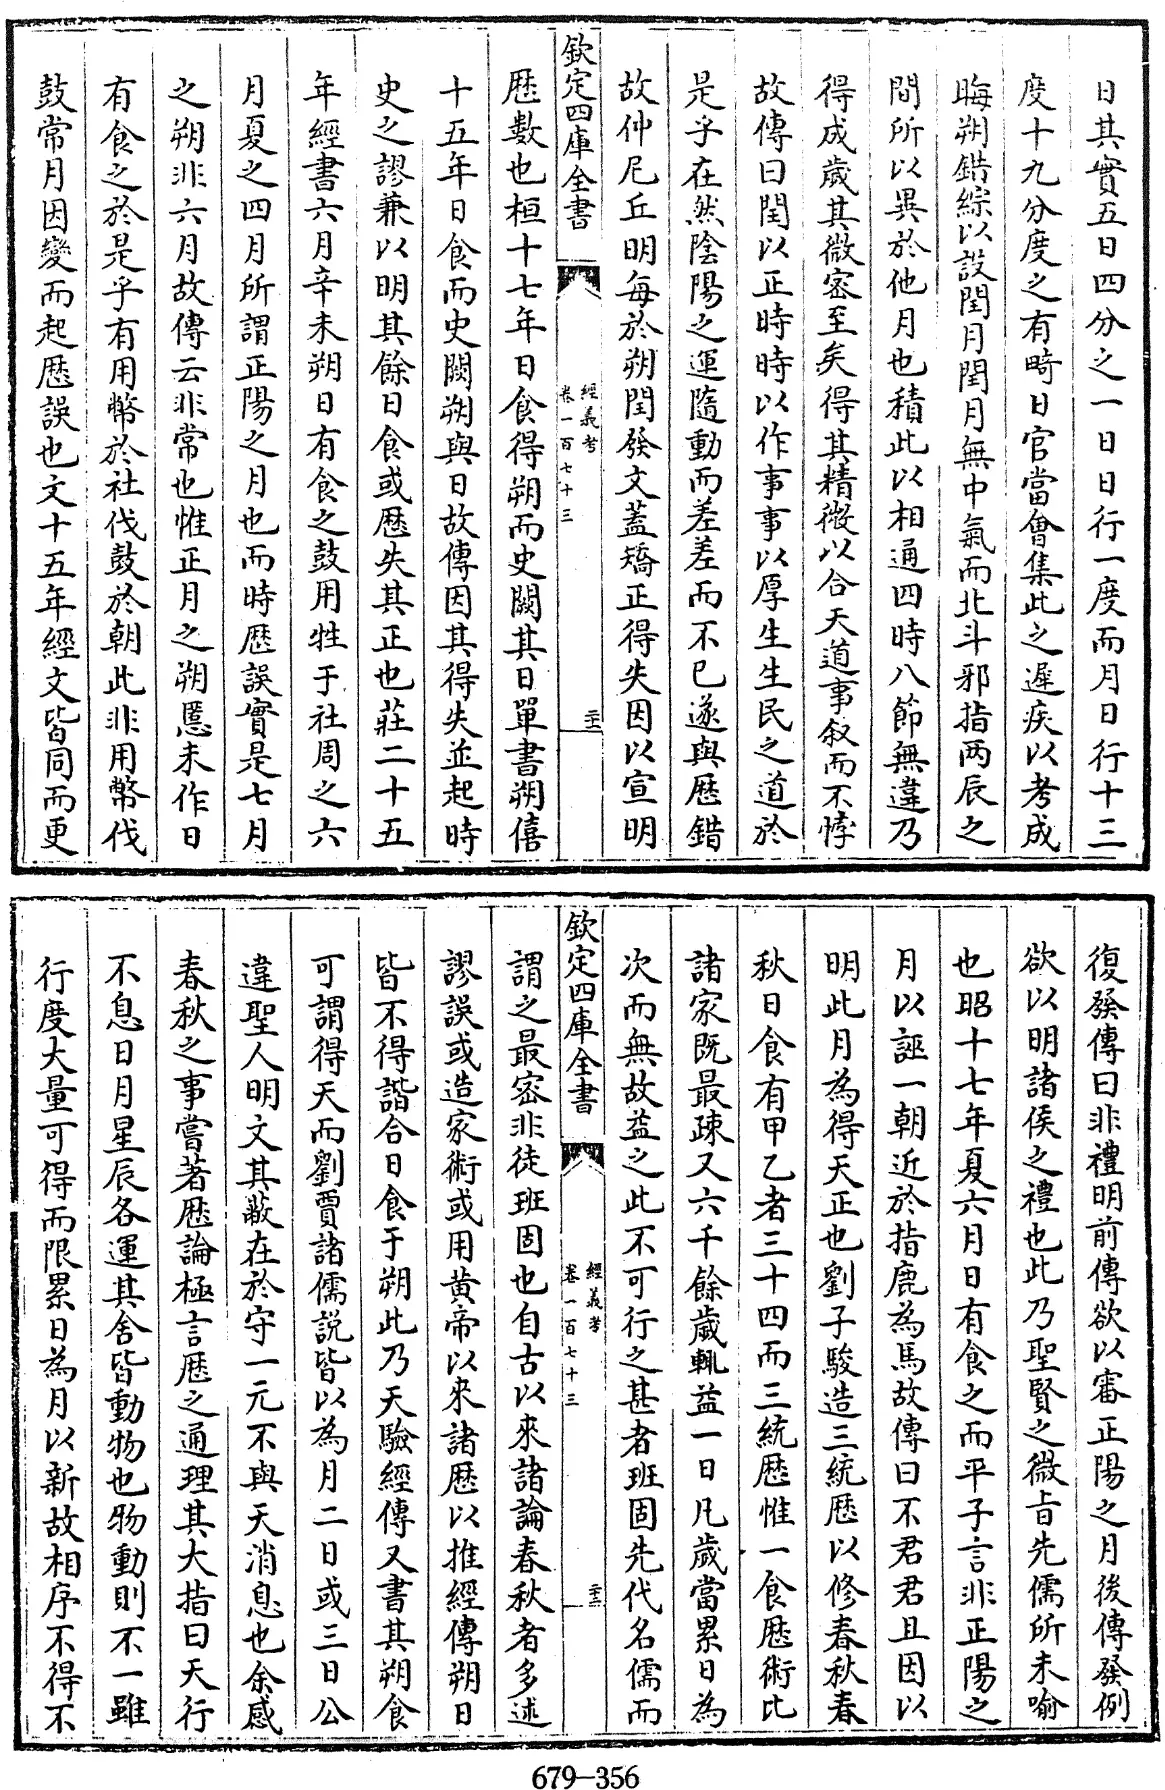 日其實五日四分之一日日行一度而月日行十三
度十九分度之有畸日官當會集此之遲疾以考成
晦朔錯綜以設閏月閏月無中氣而北斗邪指兩辰之
間所以異於他月也積此以相通四時八節無違乃
得成歲其微密至矣得其精微以合天道事叙而不悖
故傳曰閏以正時時以作事事以厚生生民之道於
是乎在然陰陽之運隨動而差差而不已遂與厯錯
故仲尼丘明每於朔閏發文蓋矯正得失因以宣明
欽定四庫全書
經義考
卷一百七十三
二十二
厯數也桓十七年日食得朔而史闕其日單書朔僖
十五年日食而史闕朔與日故傳因其得失並起時
史之謬兼以明其餘日食或厯失其正也莊二十五
年經書六月辛未朔日有食之鼓用牲于社周之六
月夏之四月所謂正陽之月也而時厯誤實是七月
之朔非六月故傳云非常也惟正月之朔慝未作日
有食之於是乎有用幣於社伐鼓於朝此非用幣伐
鼓常月因變而起厯誤也文十五年經文皆同而更
復發傳曰非禮明前傳欲以審正陽之月後傳發例
欲以明諸侯之禮也此乃聖賢之微旨先儒所未喻
也昭十七年夏六月日有食之而平子言非正陽之
月以誣一朝近於指鹿為馬故傳曰不君君且因以
明此月為得天正也劉子駿造三統厯以修春秋春
秋日食有甲乙者三十四而三統厯惟一食厯術比
諸家既最疎又六千餘歲輒益一日凡歲當累日為
次而無故益之此不可行之甚者班固先代名儒而
欽定四庫全書
經義考
卷一百七十三
二十三
謂之最密非徒班固也自古以來諸論春秋者多述
謬誤或造家術或用黄帝以來諸厯以推經傳朔日
皆不得諧合日食于朔此乃天驗經傳又書其朔食
可謂得天而劉賈諸儒説皆以為月二日或三日公
違聖人明文其蔽在於守一元不與天消息也余感
春秋之事嘗著厯論極言厯之通理其大指曰天行
不息日月星辰各運其舍皆動物也物動則不一雖
行度大量可得而限累日為月以新故相序不得不
679-356